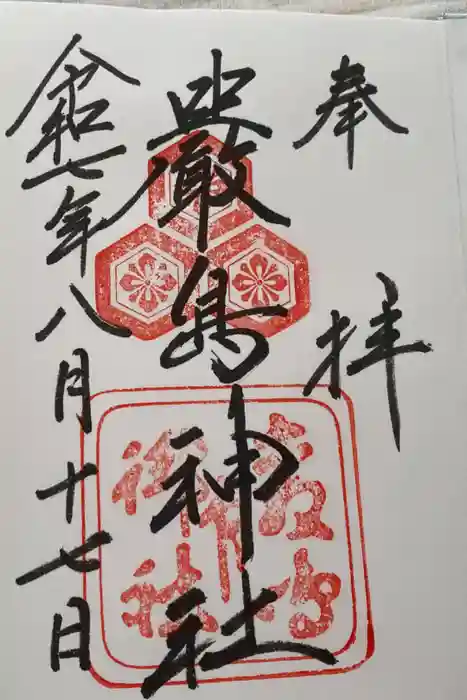 奉拝
嚴島神社
令和七年八月十七日